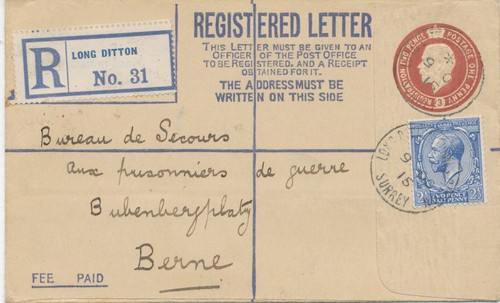 REGISTERED LETTER
THIS LETTER MUST BE GIVEN TO AN
OFFICER OF THE POST OFFICE
TO BE REGISTERED, AND A RECEIPT
OBTAINED FOR IT.
THE ADDRESS MUST BE
WRITTEN ON THIS SIDE
R
LONG DITTON
No. 31
REGISTRATION TWO PENCE POSTAGE ONE PENNY
3
Bureau de Secours
aux prisonniers de guerre
Bubenbergplatz
Berne
2½ TWO PENCE HALFPENNY 2½
SURREY
FEE PAID